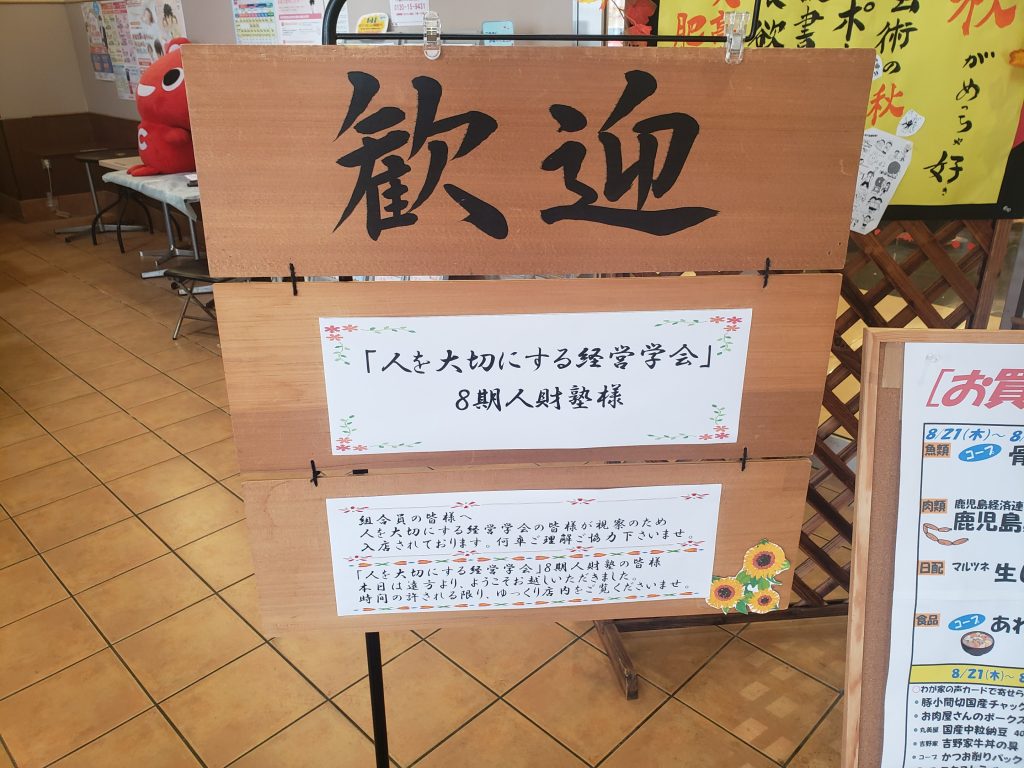 0120-15-9431
歓迎
「人を大切にする経営学会」
8期人財塾様
組合員の皆様へ
人を大切にする経営学会の皆様が視察のため
入店されております。何卒ご理解ご協力下さいませ。
「人を大切にする経営学会」8期人財塾の皆様
本日は遠方より、ようこそお越しいただきました。
時間の許される限り、ゆっくり店内をご覧くださいませ。
秋
がめっちゃ好き
芸術の秋
[お買
8/21(木)～8
魚類
コープ
肉類
鹿児島経済連
鹿児島
日配
マルツネ
食品
コープ
8/21(木)～8
○わが家の声カードで寄せら
・豚小間切国産チャック
・お肉屋さんのポークス
・丸美屋 国産中粒納豆 40
・吉野家 吉野家牛丼の具
・コープ かつお削りパック